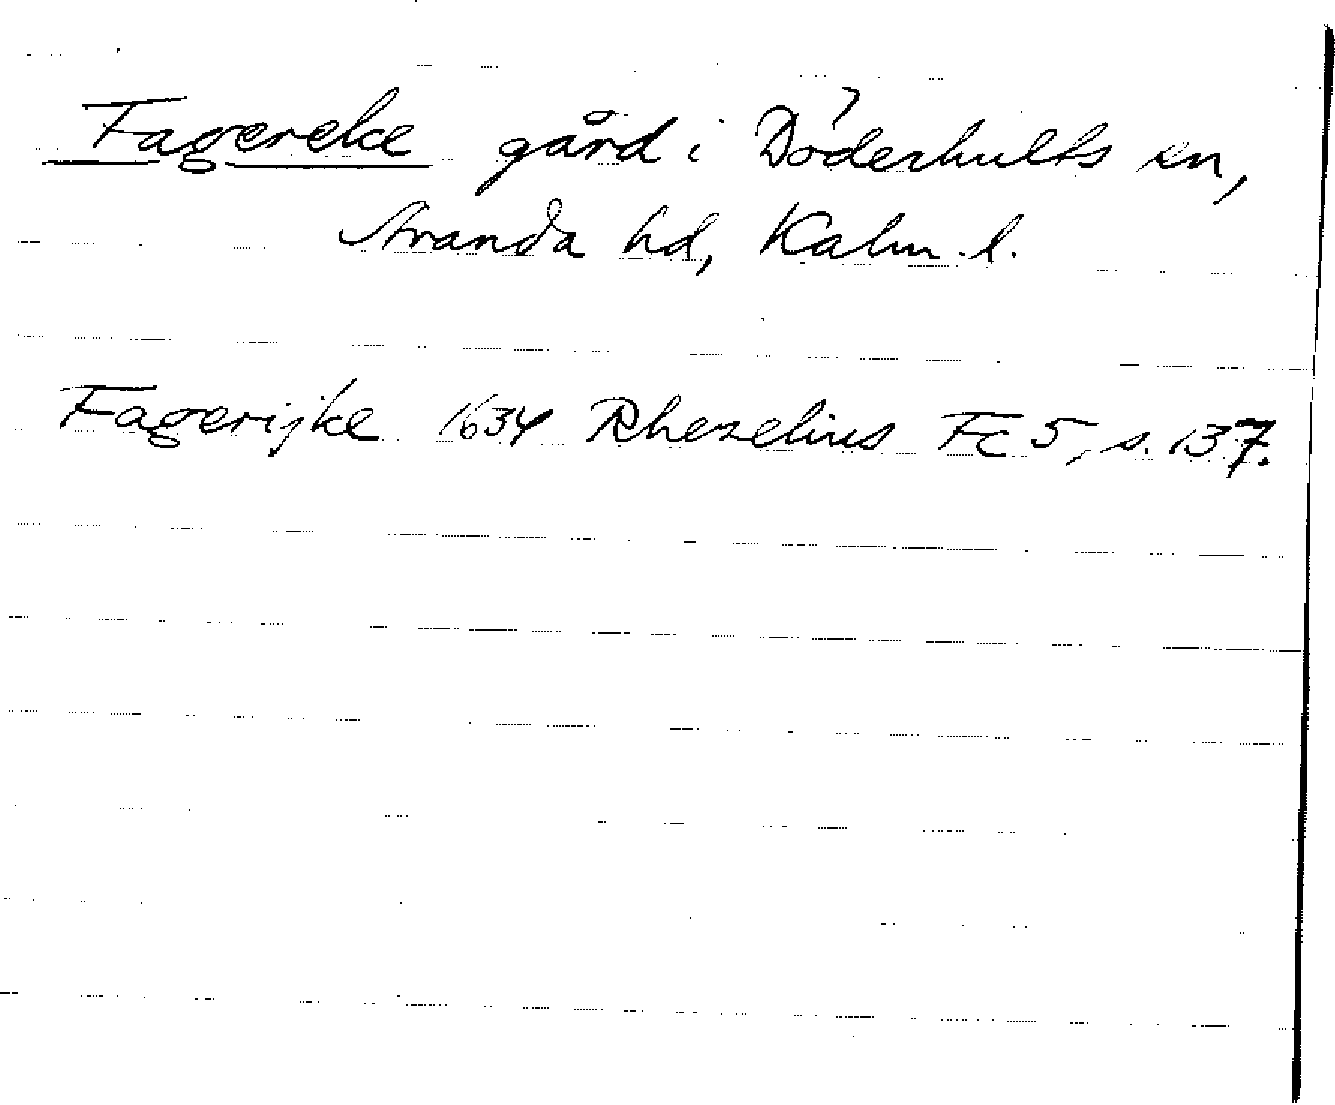 Fagereke gård i Döderhults sn,
Stranda hd, Kalm. l.
Fagerijke 1634 Rhezelius Fc 5, s. 137.